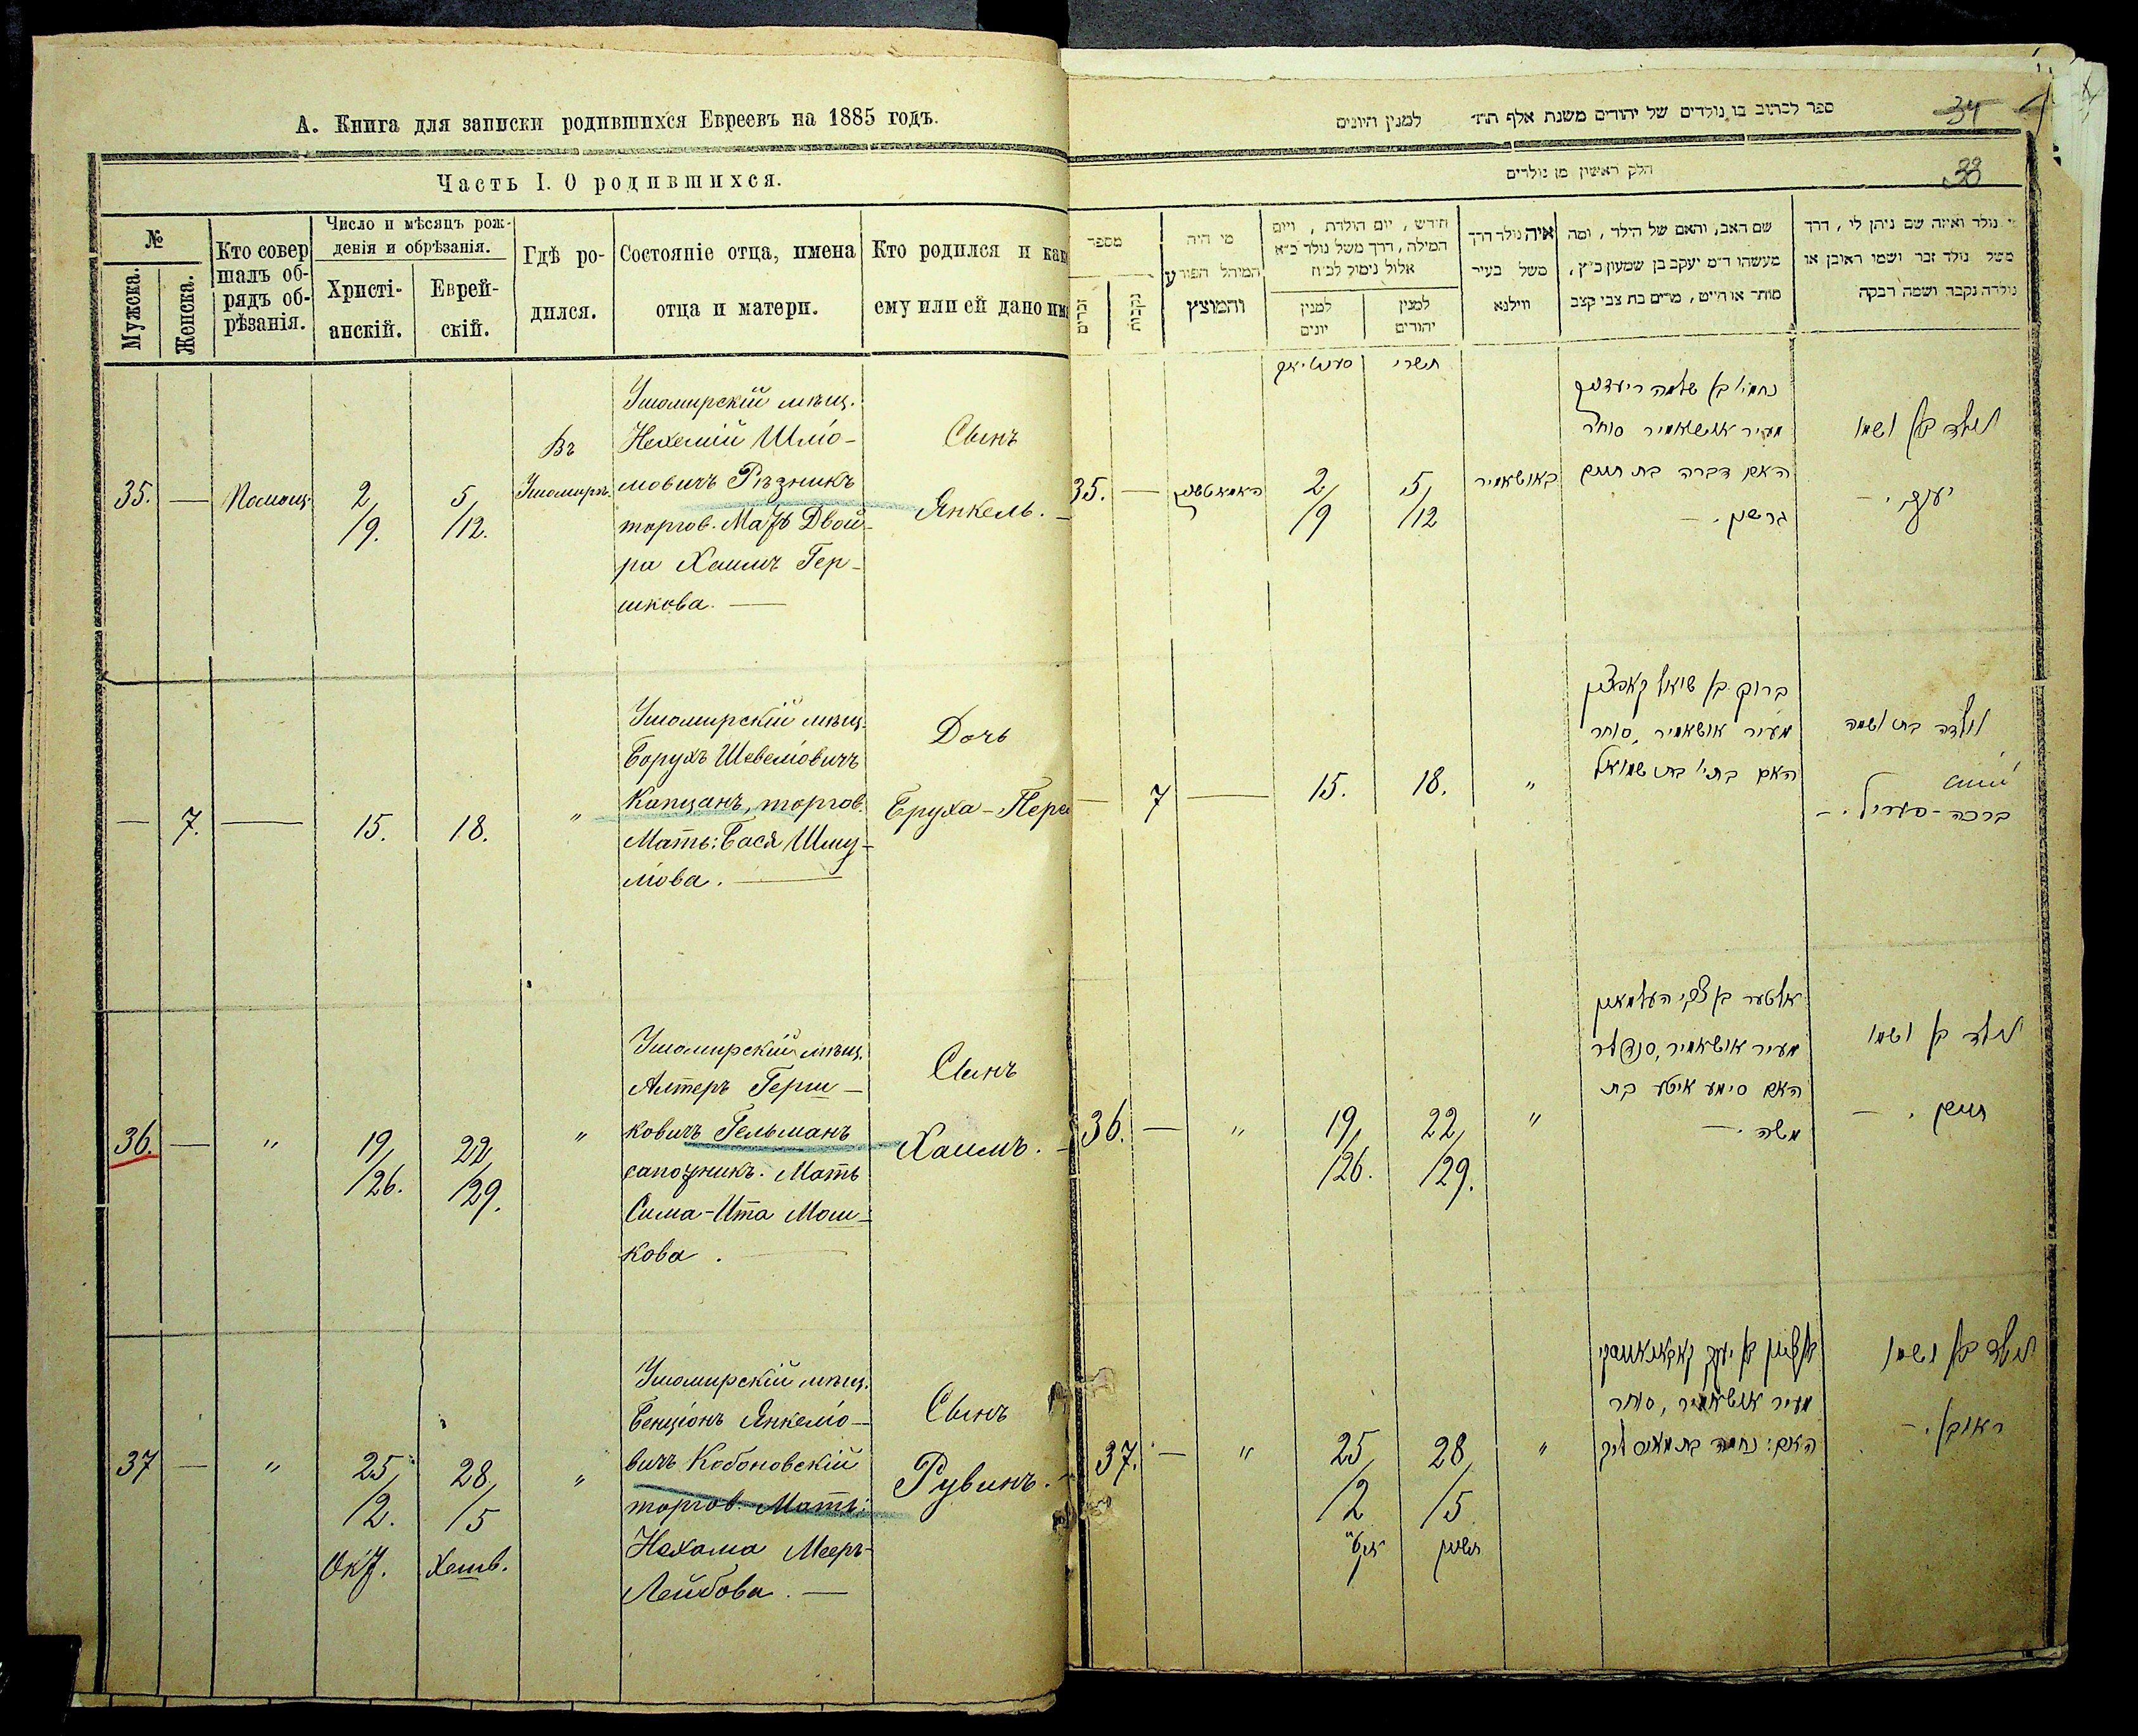 А. Книга для записки родившихся Евреевъ на 1885 годъ.
Часть I. О родившихся.
№
Мужска.
Женска.
Кто совер
шалъ об-
рядъ об-
рѣзанія.
Число и мѣсяцъ рож-
денія и обрѣзанія.
Христі-
анскій.
Еврей-
скій.
Гдѣ ро-
дился.
Состояніе отца, имена
отца и матери.
Кто родился и как
ему или ей дано им
35.
—
2/
/9.
5/
/12.
Въ
Ушомирѣ.
Ушомирскій мѣщ.
Нехемій Шліо-
мовичъ Рѣзникъ
торгов. Мать Двой-
ра Хаимъ Гер-
шкова. —
Сынъ
Янкель. —
—
7.
—
15.
18.
"
Ушомирскій мѣщ.
Борухъ Шевеліовичъ
Капцанъ, торгов.
Мать: Бася Шму-
лова. —
Дочь
Бруха-Пере
36.
—
"
19/
/26.
22/
/29.
"
Ушомирскій мѣщ.
Алтеръ Герш-
ковичъ Гельманъ
сапожникъ. Мать
Сима-Ита Мош-
кова. —
Сынъ
Хаимъ. —
37
—
"
25/
/2.
Окт.
28/
/5
Хешв.
"
Ушомирскій мѣщ.
Бенціонъ Янкеліо-
вичъ Кобоновскій
торгов. Мать:
Нехама Мееръ-
Лейбова. —
Сынъ
Рувинъ. —
34
38
ספר לכתוב בו נולדים של יהודים משנת אלף תת' למנין היונים
חלק ראשון מן נולדים
מספר
זכרים
נקבות
מי היה
המוהל הפורע
והמוצץ
חודש, יום הולדת, ויום
המילה, דרך משל נולד כ״א
אלול נימול לכ״ח
למנין
יונים
למנין
יהודים
איה נולד דרך
משל בעיר
ווילנא
שם האב, והאם של הילד, ומה
מעשהו ד״מ יעקב בן שמעון כ״ץ,
סוחר או חייט, מרים בת צבי קצב
מי נולד ואיזה שם ניתן לו, דרך
משל נולד זכר ושמו ראובן או
נולדה נקבה ושמה רבקה
תשרי
35.
—
2/
/9
5/
/12
באושאמיר
סוחר
האם דברה בת חיים
גרשון. —
נולד בן ושמו
יעקב. —
—
7
—
15.
18.
"
ברוך בן
מעיר אושאמיר, סוחר
האם בתי' בת שמואל
נולדה בת ושמה
ברכה-פעריל. —
36.
—
"
19/
/26.
22/
/29.
"
אלטער בן צבי העלמאן
מעיר אושאמיר, סנדלר
האם סימע איטע בת
משה. —
נולד בן ושמו
חיים. —
37.
—
"
25/
/2
28/
/5
חשון
"
בן ציון בן יעקב
מעיר אושאמיר, סוחר
האם: נחמה בת מאיר ליב
נולד בן ושמו
ראובן. —